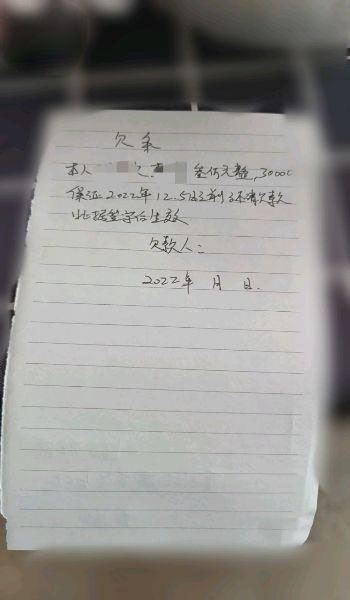 欠条
本人 欠 叁仟元整,3000
保证2022年12.5日之前还清欠款
此据签字后生效
欠款人:
2022年 月 日.